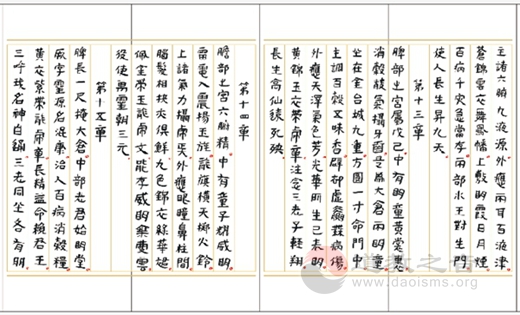 主諸六府九液源外應兩耳百液津
蒼錦雲衣舞龍幡上致明霞日月煙
百病千災急當存兩部水王對生門
使人長生昇九天
第十三章
脾部之宮屬戊己中有明童黃裳裏
消穀散氣攝牙齒是為太倉兩明童
坐在金台城九重方圓一寸命門中
主調百穀五味香辟卻虛羸無病傷
外應尺宅氣色芳光華所生以表明
黃錦玉衣帶虎章注念三老子輕翔
長生高仙遠死殃
第十四章
膽部之宮六腑精中有童子曜威明
雷電八震揚玉旌龍旗橫天擲火鈴
主諸氣力攝虎兵外應眼瞳鼻柱間
腦髮相扶亦俱鮮九色錦衣綠華裙
佩金帶玉龍虎文能存威明乘慶雲
役使萬靈朝三元
第十五章
脾長一尺掩太倉中部老君治明堂
厥字靈元名混康治人百病消穀糧
黃衣紫帶龍虎章長精益命賴君王
三呼我名神自通三老同坐各有朋
道教之音
www.daoisms.org